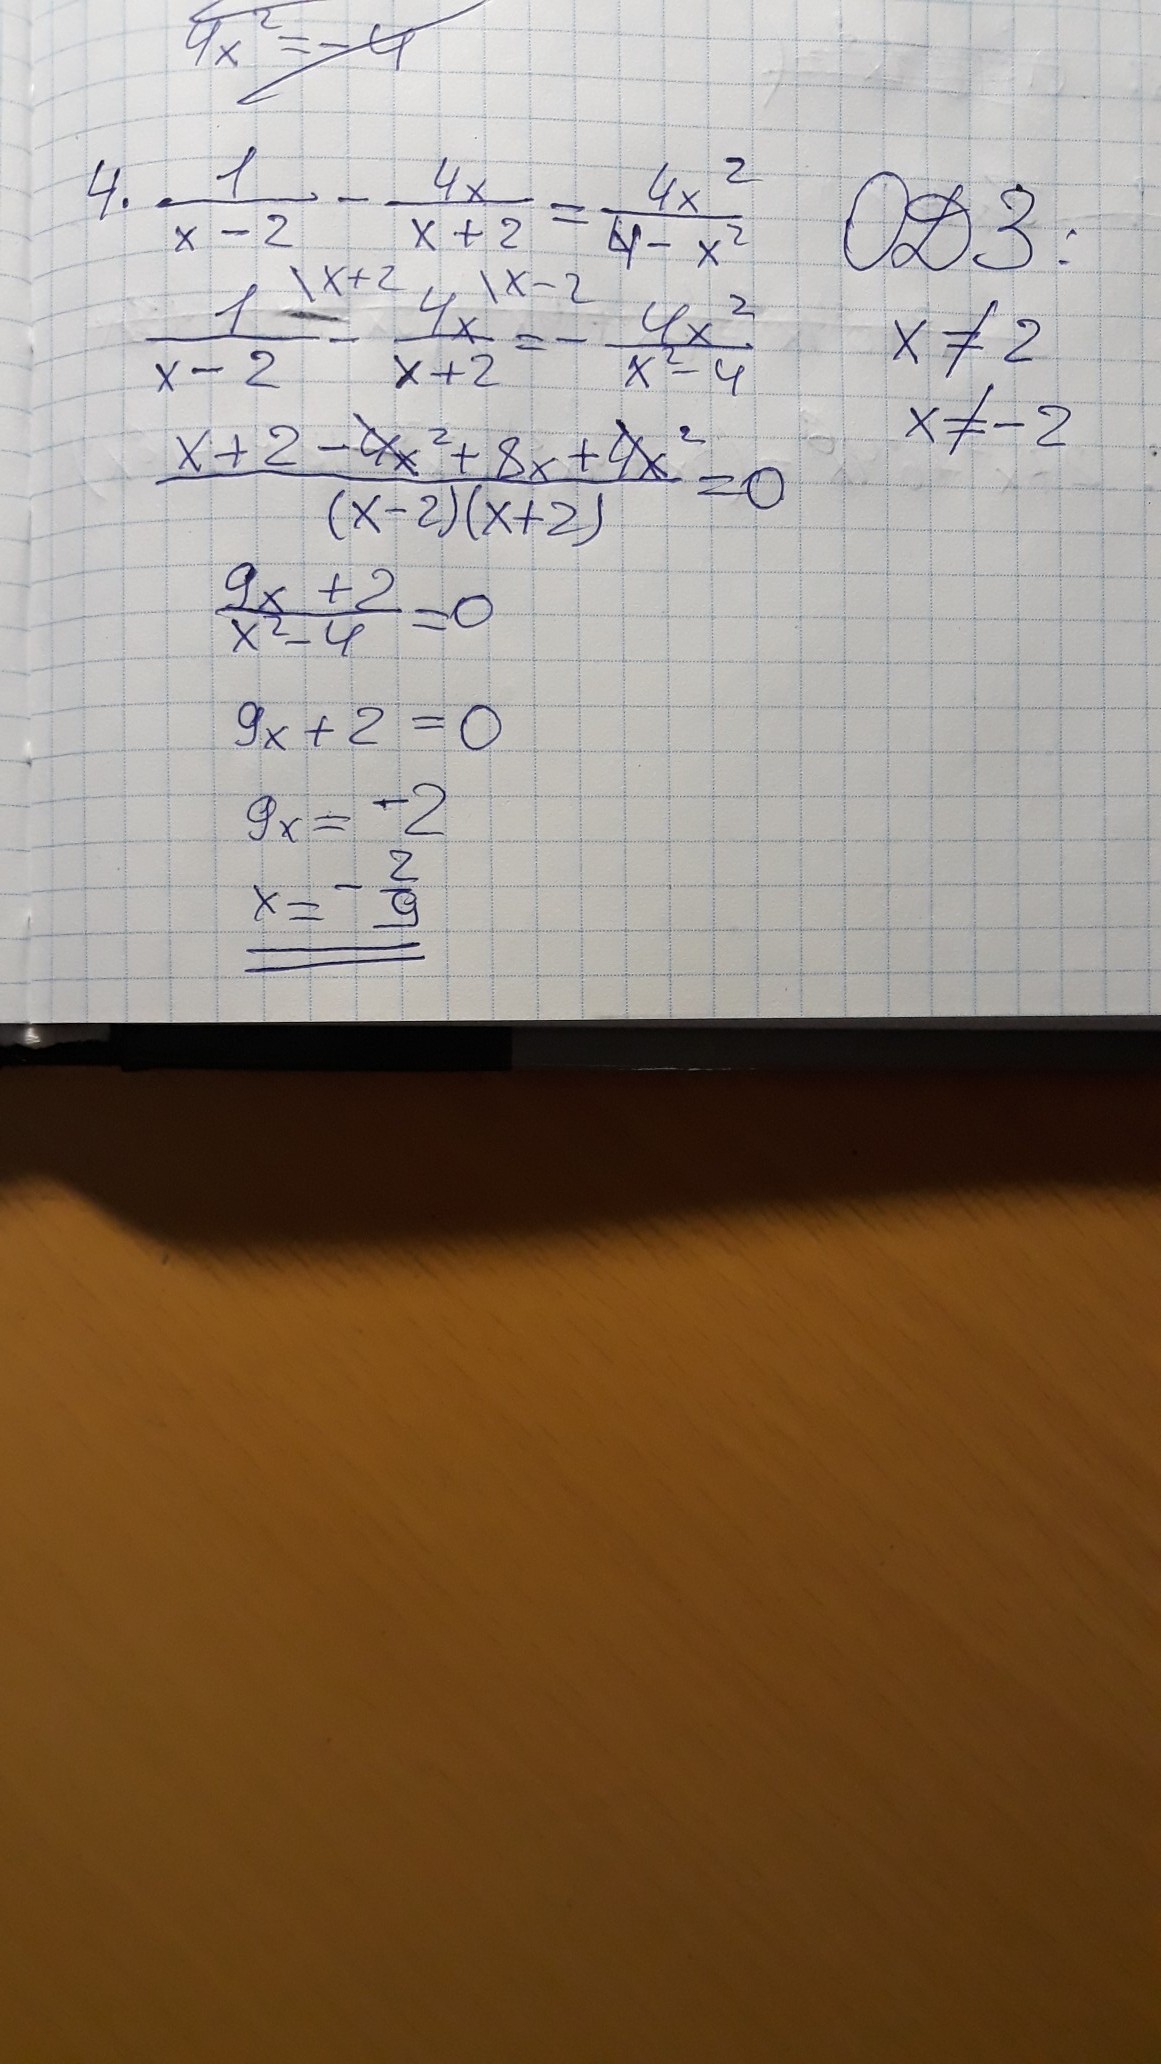 4x² = -4
4. 1/(x-2) - 4x/(x+2) = 4x²/(4-x²) ОДЗ:
1/(x-2) \x+2 - 4x/(x+2) \x-2 = - 4x²/(x²-4) x ≠ 2
x ≠ -2
(x+2-4x²+8x+4x²)/((x-2)(x+2)) = 0
(9x+2)/(x²-4) = 0
9x + 2 = 0
9x = -2
x = - 2/9